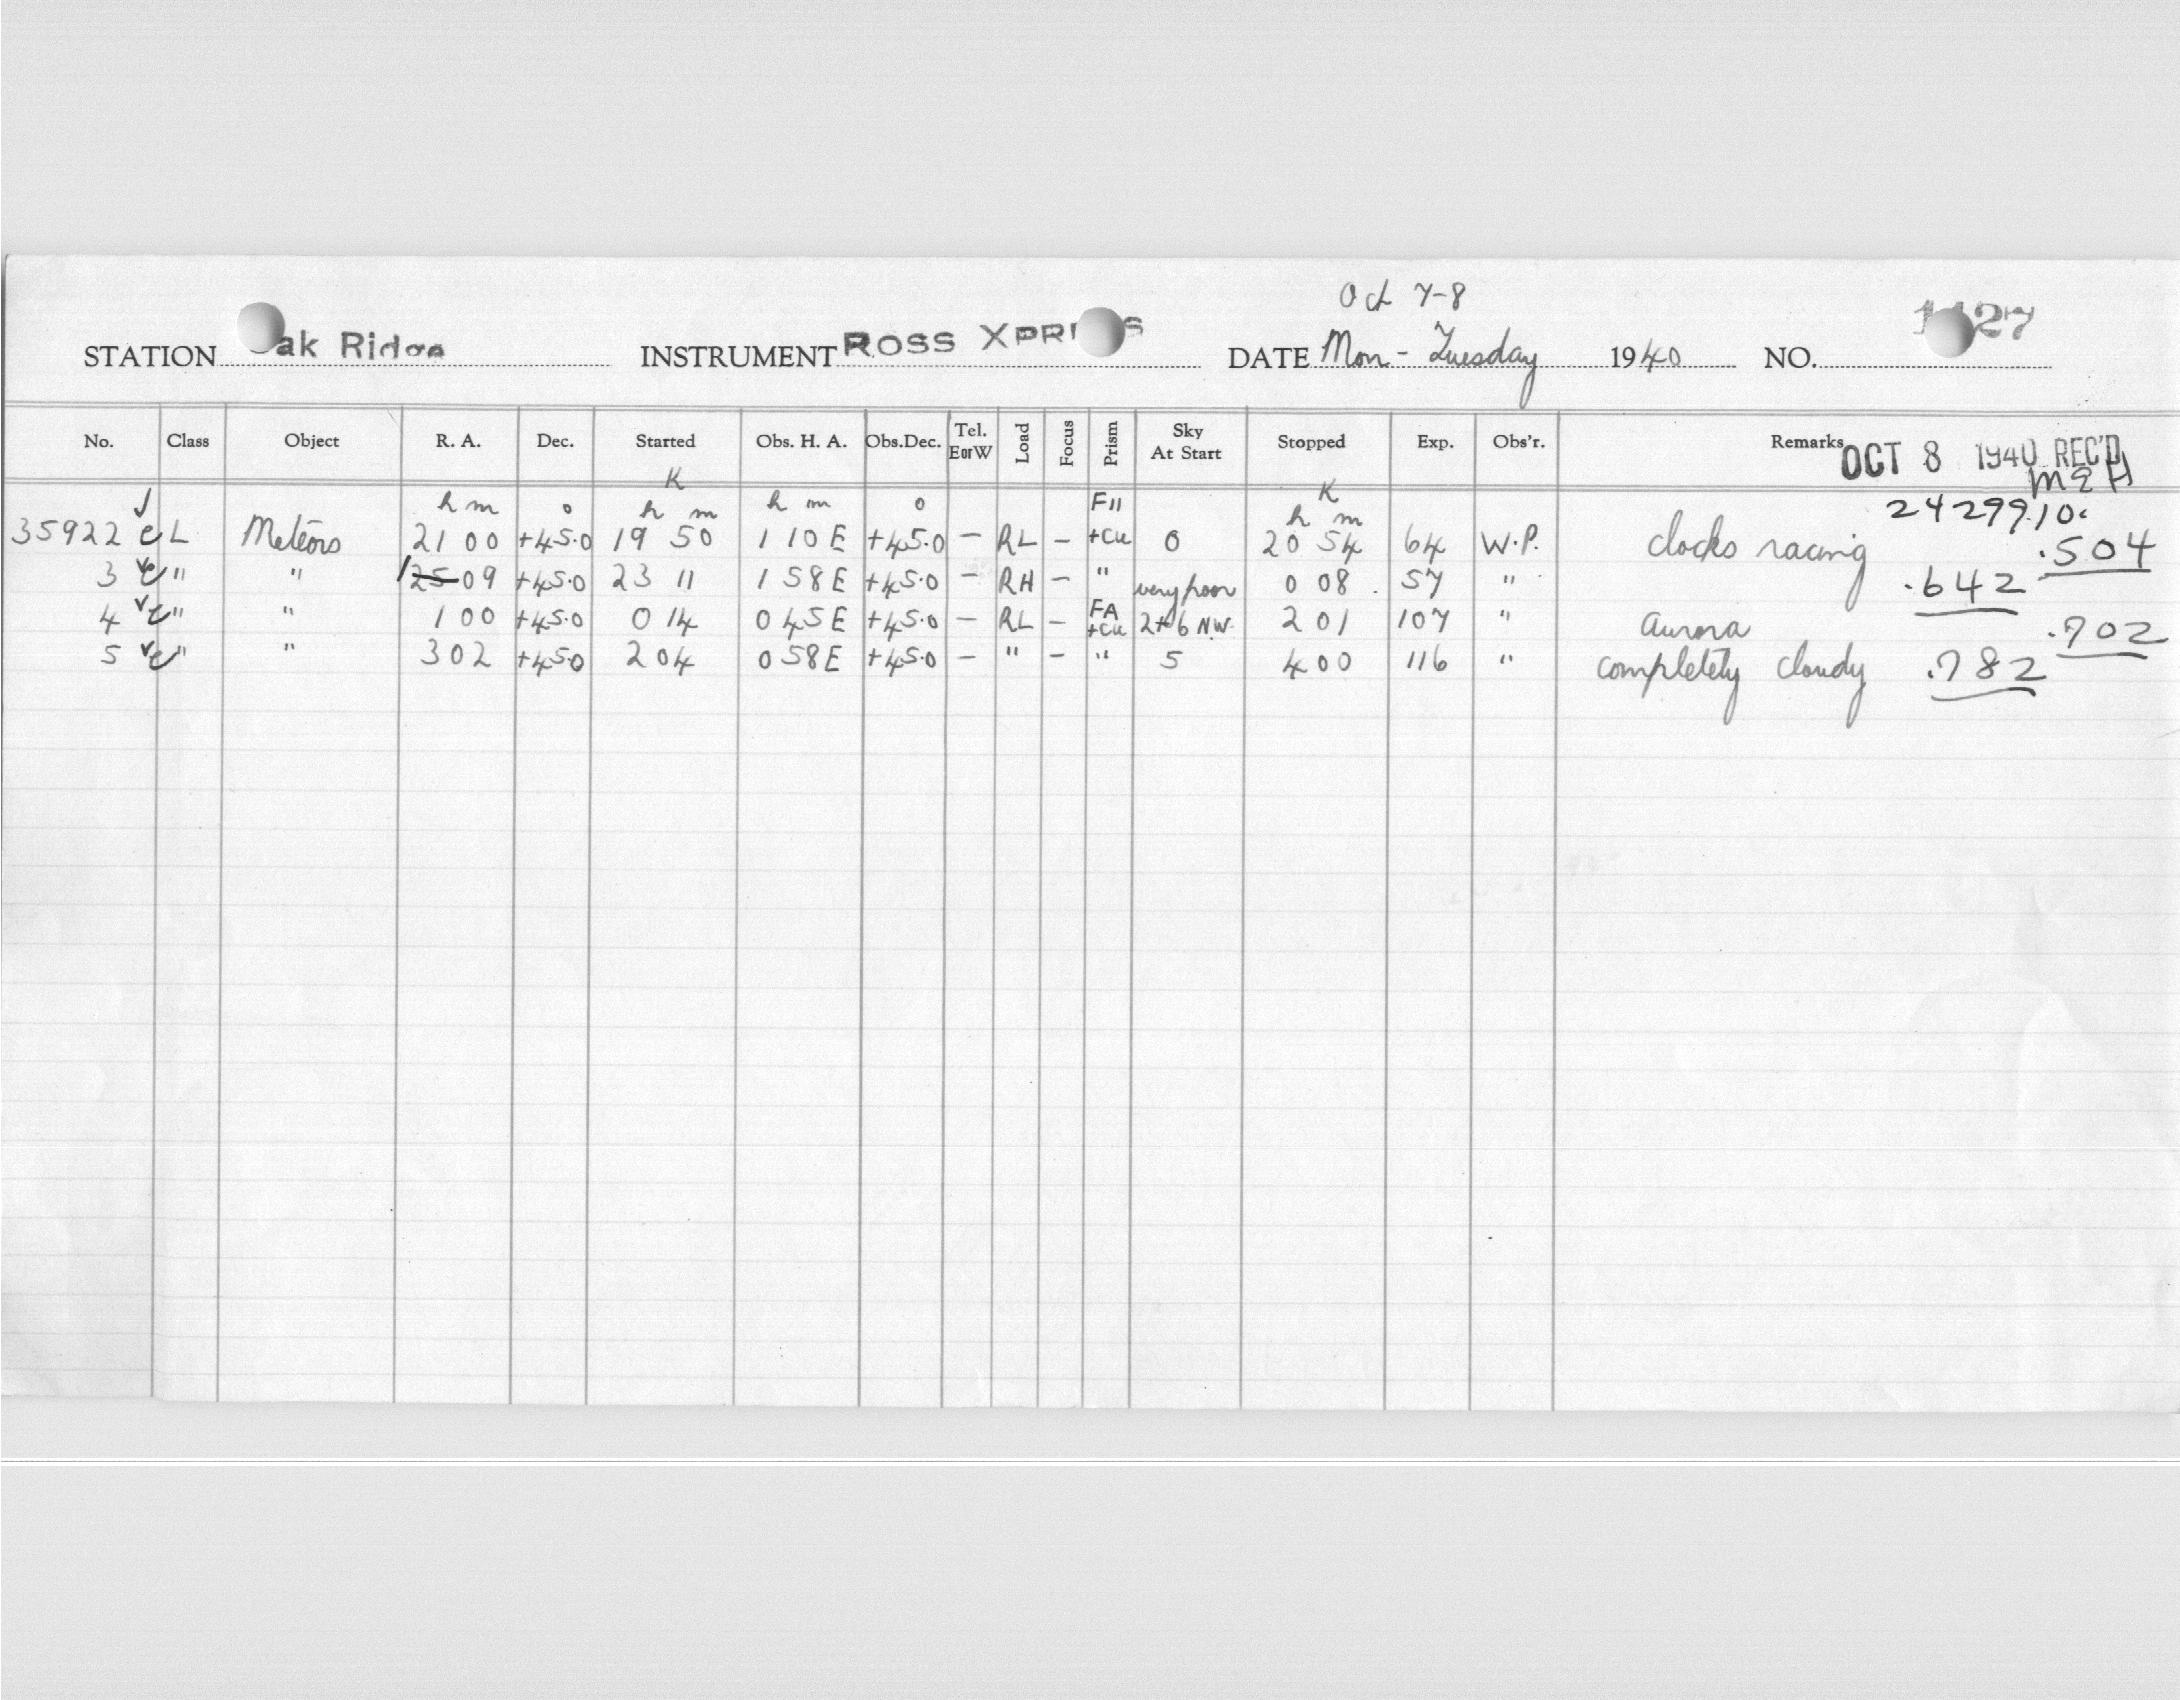 Oct 7-8
STATION ak Ridge INSTRUMENT ROSS XPRES DATE Mon - Tuesday 1940 NO. 1127
No. Class Object R. A. Dec. Started Obs. H. A. Obs.Dec. Tel. EorW Load Focus Prism Sky At Start Stopped Exp. Obs'r. Remarks OCT 8 1940 REC'D
K K M E H
h m o h m h m o F11 h m 2429910.
35922 e L Meteors 21 00 +45.0 19 50 1 10 E +45.0 - RL - +Cu 0 20 54 64 W.P. clocks racing .504
3 e " " 1 25 09 +45.0 23 11 1 58 E +45.0 - RH - " very poor 0 08 57 " .642
4 e " " 1 00 +45.0 0 14 0 45 E +45.0 - RL - FA +Cu 2+6 N.W. 2 01 107 " aurora .702
5 e " " 3 02 +45.0 2 04 0 58 E +45.0 - " - " 5 4 00 116 " completely cloudy .782